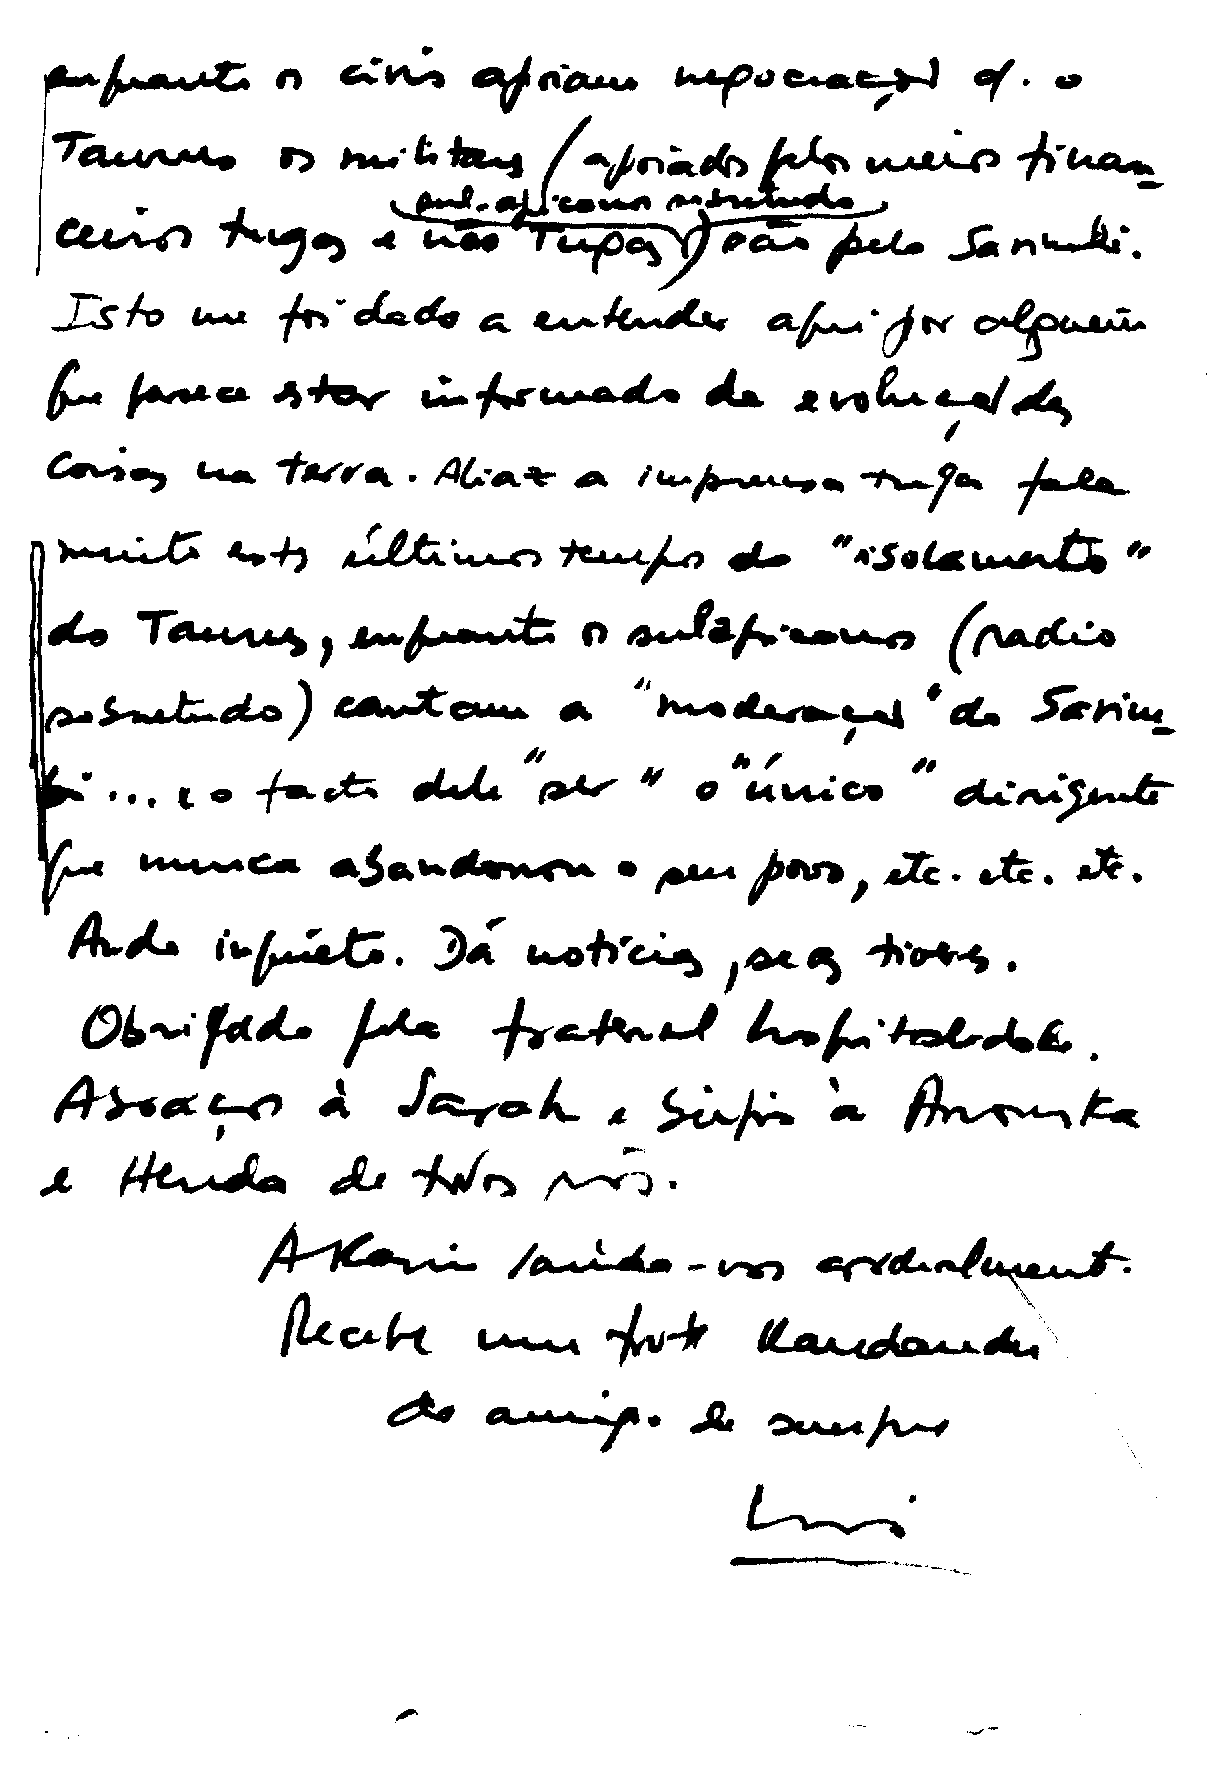 enquanto os civis apoiam negociações c/. o
Taurus os militares (apoiados pelos meios finan-
sul-africanos sobretudo
ceiros tugas e não Tugas) são pelo Savimbi.
Isto me foi dado a entender aqui por alguém
que parece estar informado da evolução das
coisas na terra. Aliaz a imprensa tuga fala
muito estes últimos tempos do "isolamento"
do Taurus, enquanto os sulafricanos (radio
sobretudo) cantam a "moderação" do Savim-
bi... e o facto dele "ser" o "único" dirigente
que nunca abandonou o seu povo, etc. etc. etc.
Ando inquieto. Dá notícias, se as tiveres.
Obrigado pela fraternal hospitalidade.
Abraços à Sarah e beijos à Anouska
e Henda de todos nós.
A Karin saúda-vos cordialmente.
Recebe um forte Kandandu
do amigo de sempre
Luís